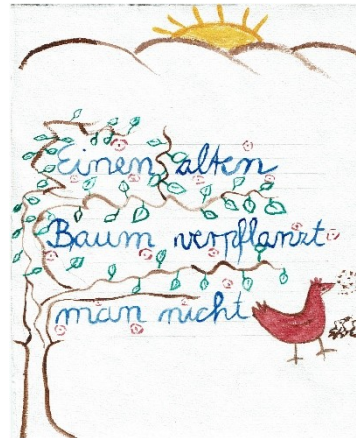 Einen alten
Baum verpflanzt
man nicht